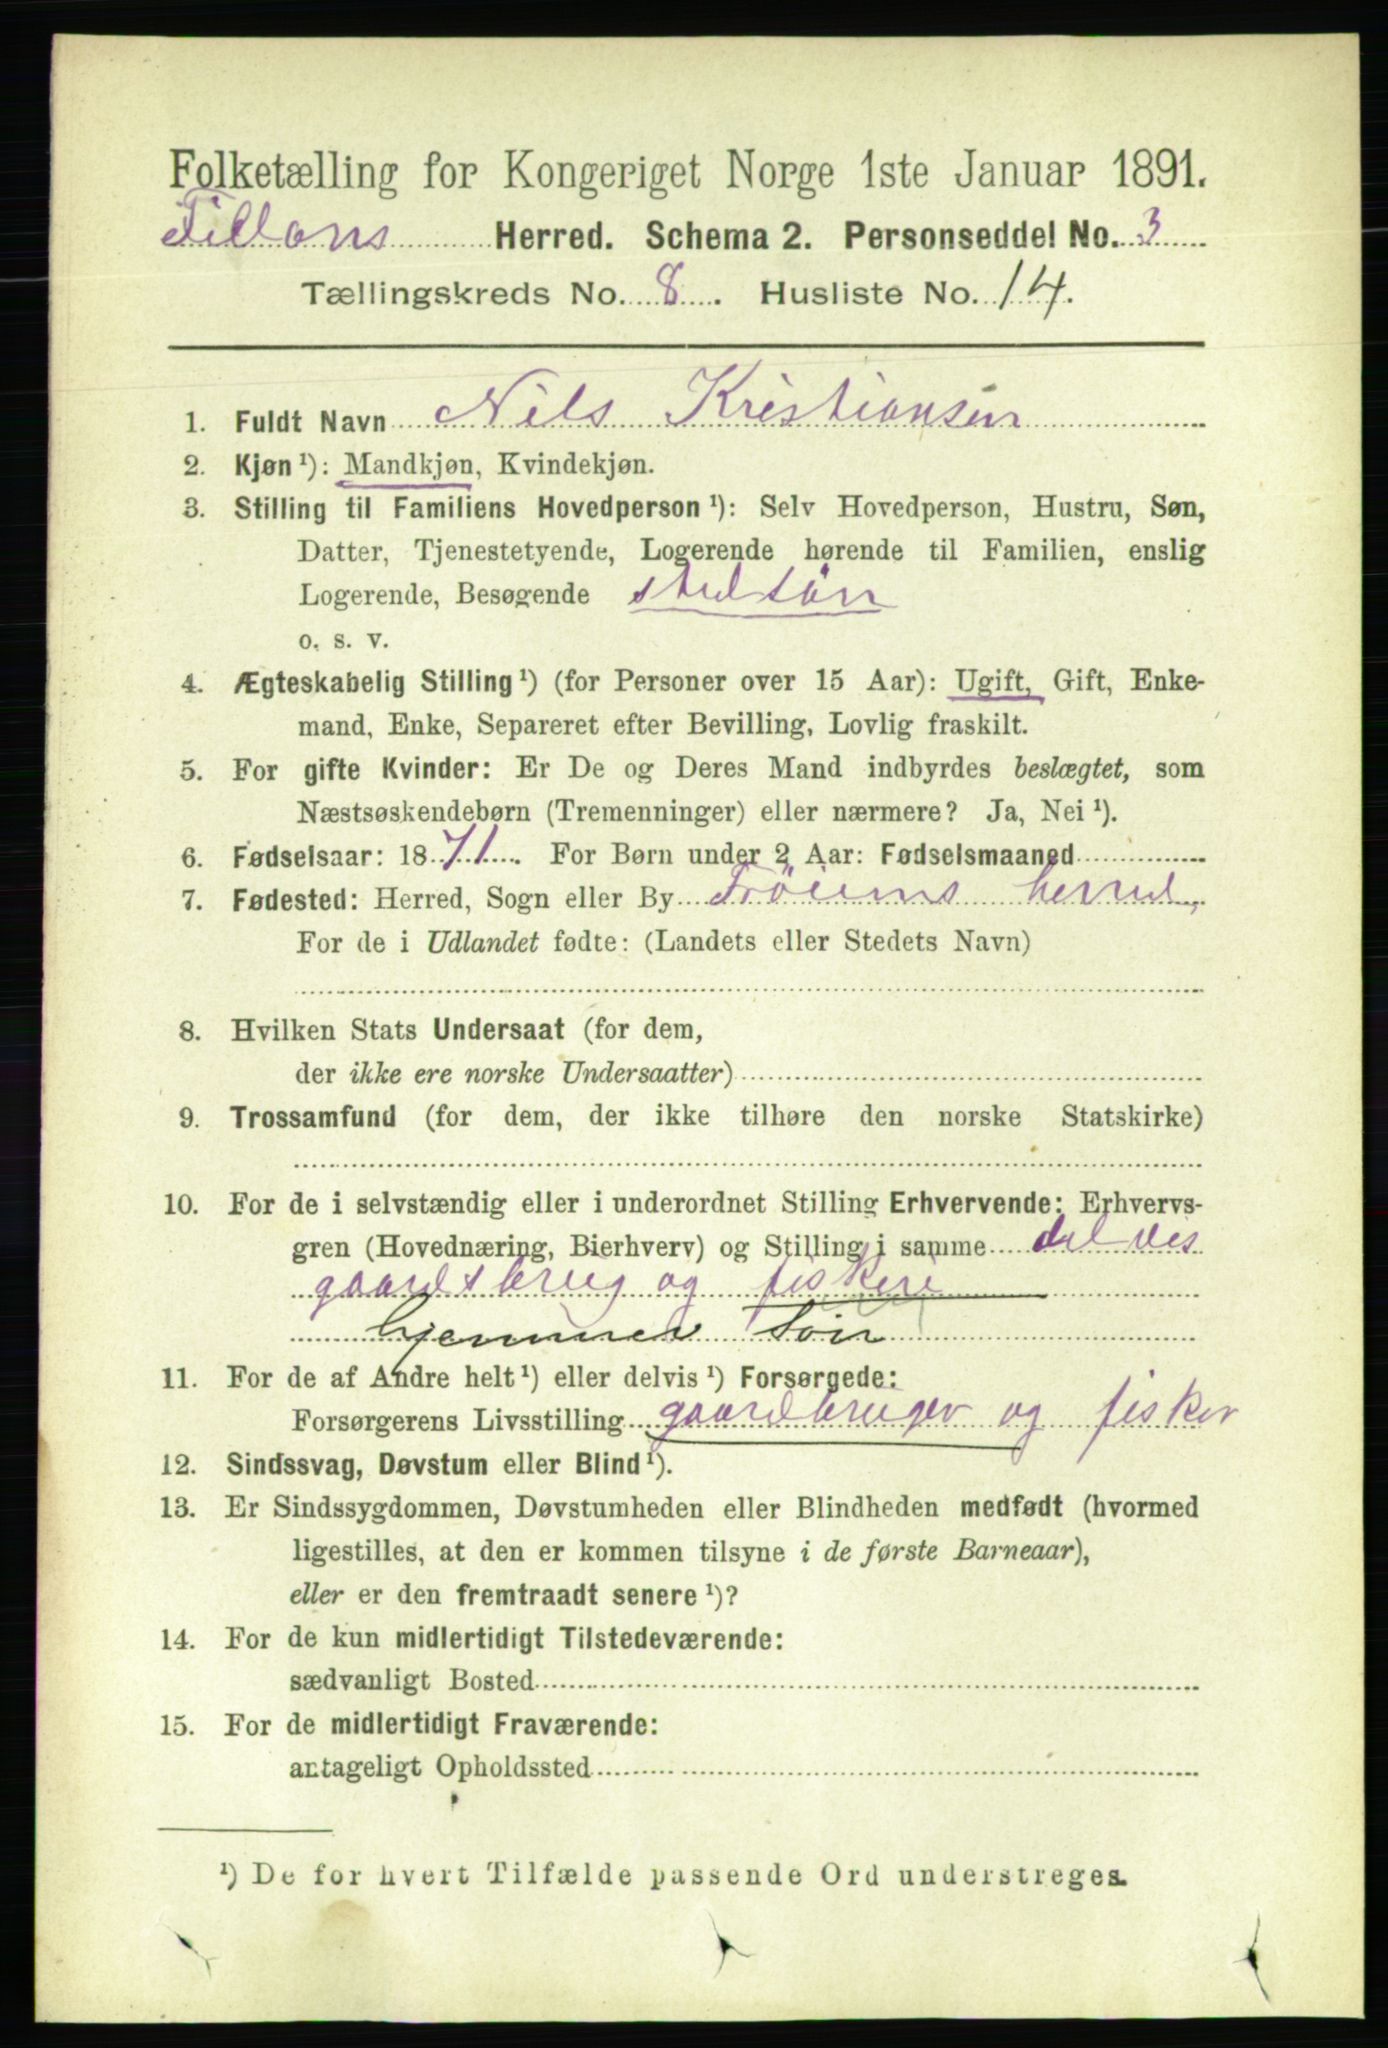 Folketælling for Kongeriget Norge 1ste Januar 1891.
Fillans Herred. Schema 2. Personseddel No. 3
Tællingskreds No. 8. Husliste No. 14.
1. Fuldt Navn Nils Kristiansen
2. Kjøn ¹): Mandkjøn, Kvindekjøn.
3. Stilling til Familiens Hovedperson ¹): Selv Hovedperson, Hustru, Søn,
Datter, Tjenestetyende, Logerende hørende til Familien, enslig
Logerende, Besøgende stedsön
o. s. v.
4. Ægteskabelig Stilling ¹) (for Personer over 15 Aar): Ugift, Gift, Enke-
mand, Enke, Separeret efter Bevilling, Lovlig fraskilt.
5. For gifte Kvinder: Er De og Deres Mand indbyrdes beslægtet, som
Næstsøskendebørn (Tremenninger) eller nærmere? Ja, Nei ¹).
6. Fødselsaar: 1871. For Børn under 2 Aar: Fødselsmaaned
7. Fødested: Herred, Sogn eller By Fröiens herred,
For de i Udlandet fødte: (Landets eller Stedets Navn)
8. Hvilken Stats Undersaat (for dem,
der ikke ere norske Undersaatter)
9. Trossamfund (for dem, der ikke tilhøre den norske Statskirke)
10. For de i selvstændig eller i underordnet Stilling Erhvervende: Erhvervs-
gren (Hovednæring, Bierhverv) og Stilling i samme delves
gaardsbrug og fiskeri
hjemmev Søn
11. For de af Andre helt ¹) eller delvis ¹) Forsørgede:
Forsørgerens Livsstilling gaardbruger og fisker
12. Sindssvag, Døvstum eller Blind ¹).
13. Er Sindssygdommen, Døvstumheden eller Blindheden medfødt (hvormed
ligestilles, at den er kommen tilsyne i de første Barneaar),
eller er den fremtraadt senere ¹)?
14. For de kun midlertidigt Tilstedeværende:
sædvanligt Bosted
15. For de midlertidigt Fraværende:
antageligt Opholdssted
¹) De for hvert Tilfælde passende Ord understreges.